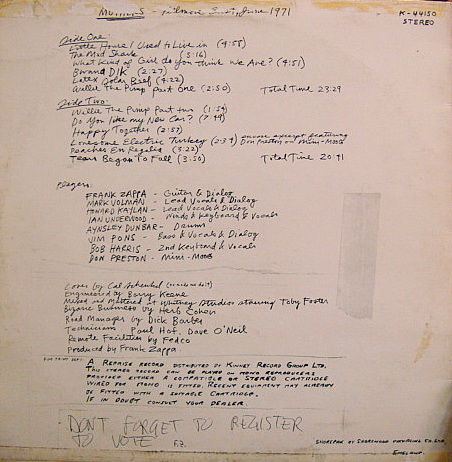 Mothers - Fillmore East, June 1971
K-44150
STEREO
Side One
Little House I Used to Live in (4:58)
The Mud Shark (5:16)
What Kind of Girl do you Think We Are? (4:51)
Bwana Dik (2:27)
Latex Solar Beef (4:22)
Willie The Pimp Part One (2:50) Total Time 23:29
Side Two:
Willie The Pimp Part two (1:54)
Do You like my New Car? (7:49)
Happy Together (2:57)
Lonesome Electric Turkey (2:39) encore excerpt featuring Don Preston on Mini-Moog
Peaches En Regalia (3:22)
Tears Began To Fall (3:50) Total Time 20:41
Players:
FRANK ZAPPA - Guitar & Dialog
MARK VOLMAN - Lead Vocals & Dialog
HOWARD KAYLAN - Lead Vocals & Dialog
IAN UNDERWOOD - Winds & Keyboard & Vocals
AYNSLEY DUNBAR - Drums
JIM PONS - Bass & Vocals & Dialog
BOB HARRIS - 2nd Keyboard & Vocals
DON PRESTON - Mini-Moog
Cover by Cal Schenkel
Engineered by Barry Keene
Mixed and Mastered at Whitney Studios starring Toby Foster
Bizarre Business by Herb Cohen
Road Manager by Dick Barber
Technicians Paul Hof, Dave O'Neil
Remote Facilities by Fedco
Produced by Frank Zappa
A REPRISE RECORD DISTRIBUTED BY KINNEY RECORD GROUP LTD.
THIS STEREO RECORD CAN BE PLAYED ON MONO REPRODUCERS
PROVIDED EITHER A COMPATIBLE OR STEREO CARTRIDGE
WIRED FOR MONO IS FITTED. RECENT EQUIPMENT MAY ALREADY
BE FITTED WITH A SUITABLE CARTRIDGE.
IF IN DOUBT CONSULT YOUR DEALER.
DON'T FORGET TO REGISTER
TO VOTE F.Z.
SHOREPAK BY SHOREWOOD PACKAGING CO. LTD.
ENGLAND.